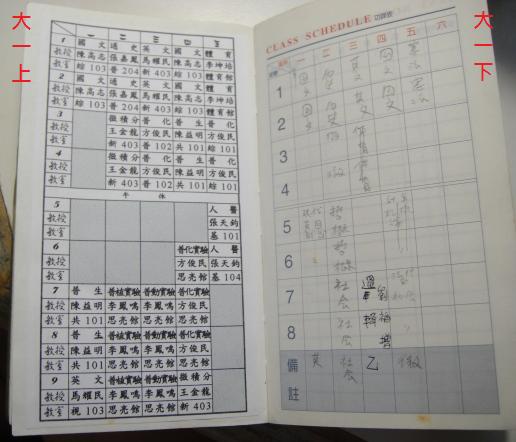 大一上
一 二 三 四 五
1 國文 通史 英文 國文 體育
教授 陳高志 張嘉鳳 馬耀民 陳高志 李坤培
教室 綜103 普204 新403 綜103 體育館
2 國文 通史 英文 國文 體育
教授 陳高志 張嘉鳳 馬耀民 陳高志 李坤培
教室 綜103 普204 新403 綜103 體育館
3 微積分 普化 普生 普化
教授 王金龍 方俊民 陳益明 方俊民
教室 新403 普102 共101 綜101
4 微積分 普化 普生 普化
教授 王金龍 方俊民 陳益明 方俊民
教室 新403 普102 共101 綜101
午休
5 人醫
教授 張天鈞
教室 基101
6 普化實驗 人醫
教授 方俊民 張天鈞
教室 思亮館 基104
7 普生 普植實驗 普動實驗 普化實驗
教授 陳益明 李鳳鳴 李鳳鳴 方俊民
教室 共101 思亮館 思亮館 思亮館
8 普生 普植實驗 普動實驗 普化實驗
教授 陳益明 李鳳鳴 李鳳鳴 方俊民
教室 共101 思亮館 思亮館 思亮館
9 英文 普植實驗 普動實驗 微積分
教授 馬耀民 李鳳鳴 李鳳鳴 王金龍
教室 視103 思亮館 思亮館 新403
大一下
CLASS SCHEDULE 功課表
一 二 三 四 五 六
1 國文 英文 國文 憲法
2 國文 英文 國文 憲法
3 體育
4 微 體育
5 哲概
6 哲概
7 社會
8 社會
備註 英 社會 乙 微